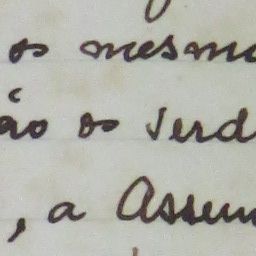 os mesmo
ão os verd
, a Assem